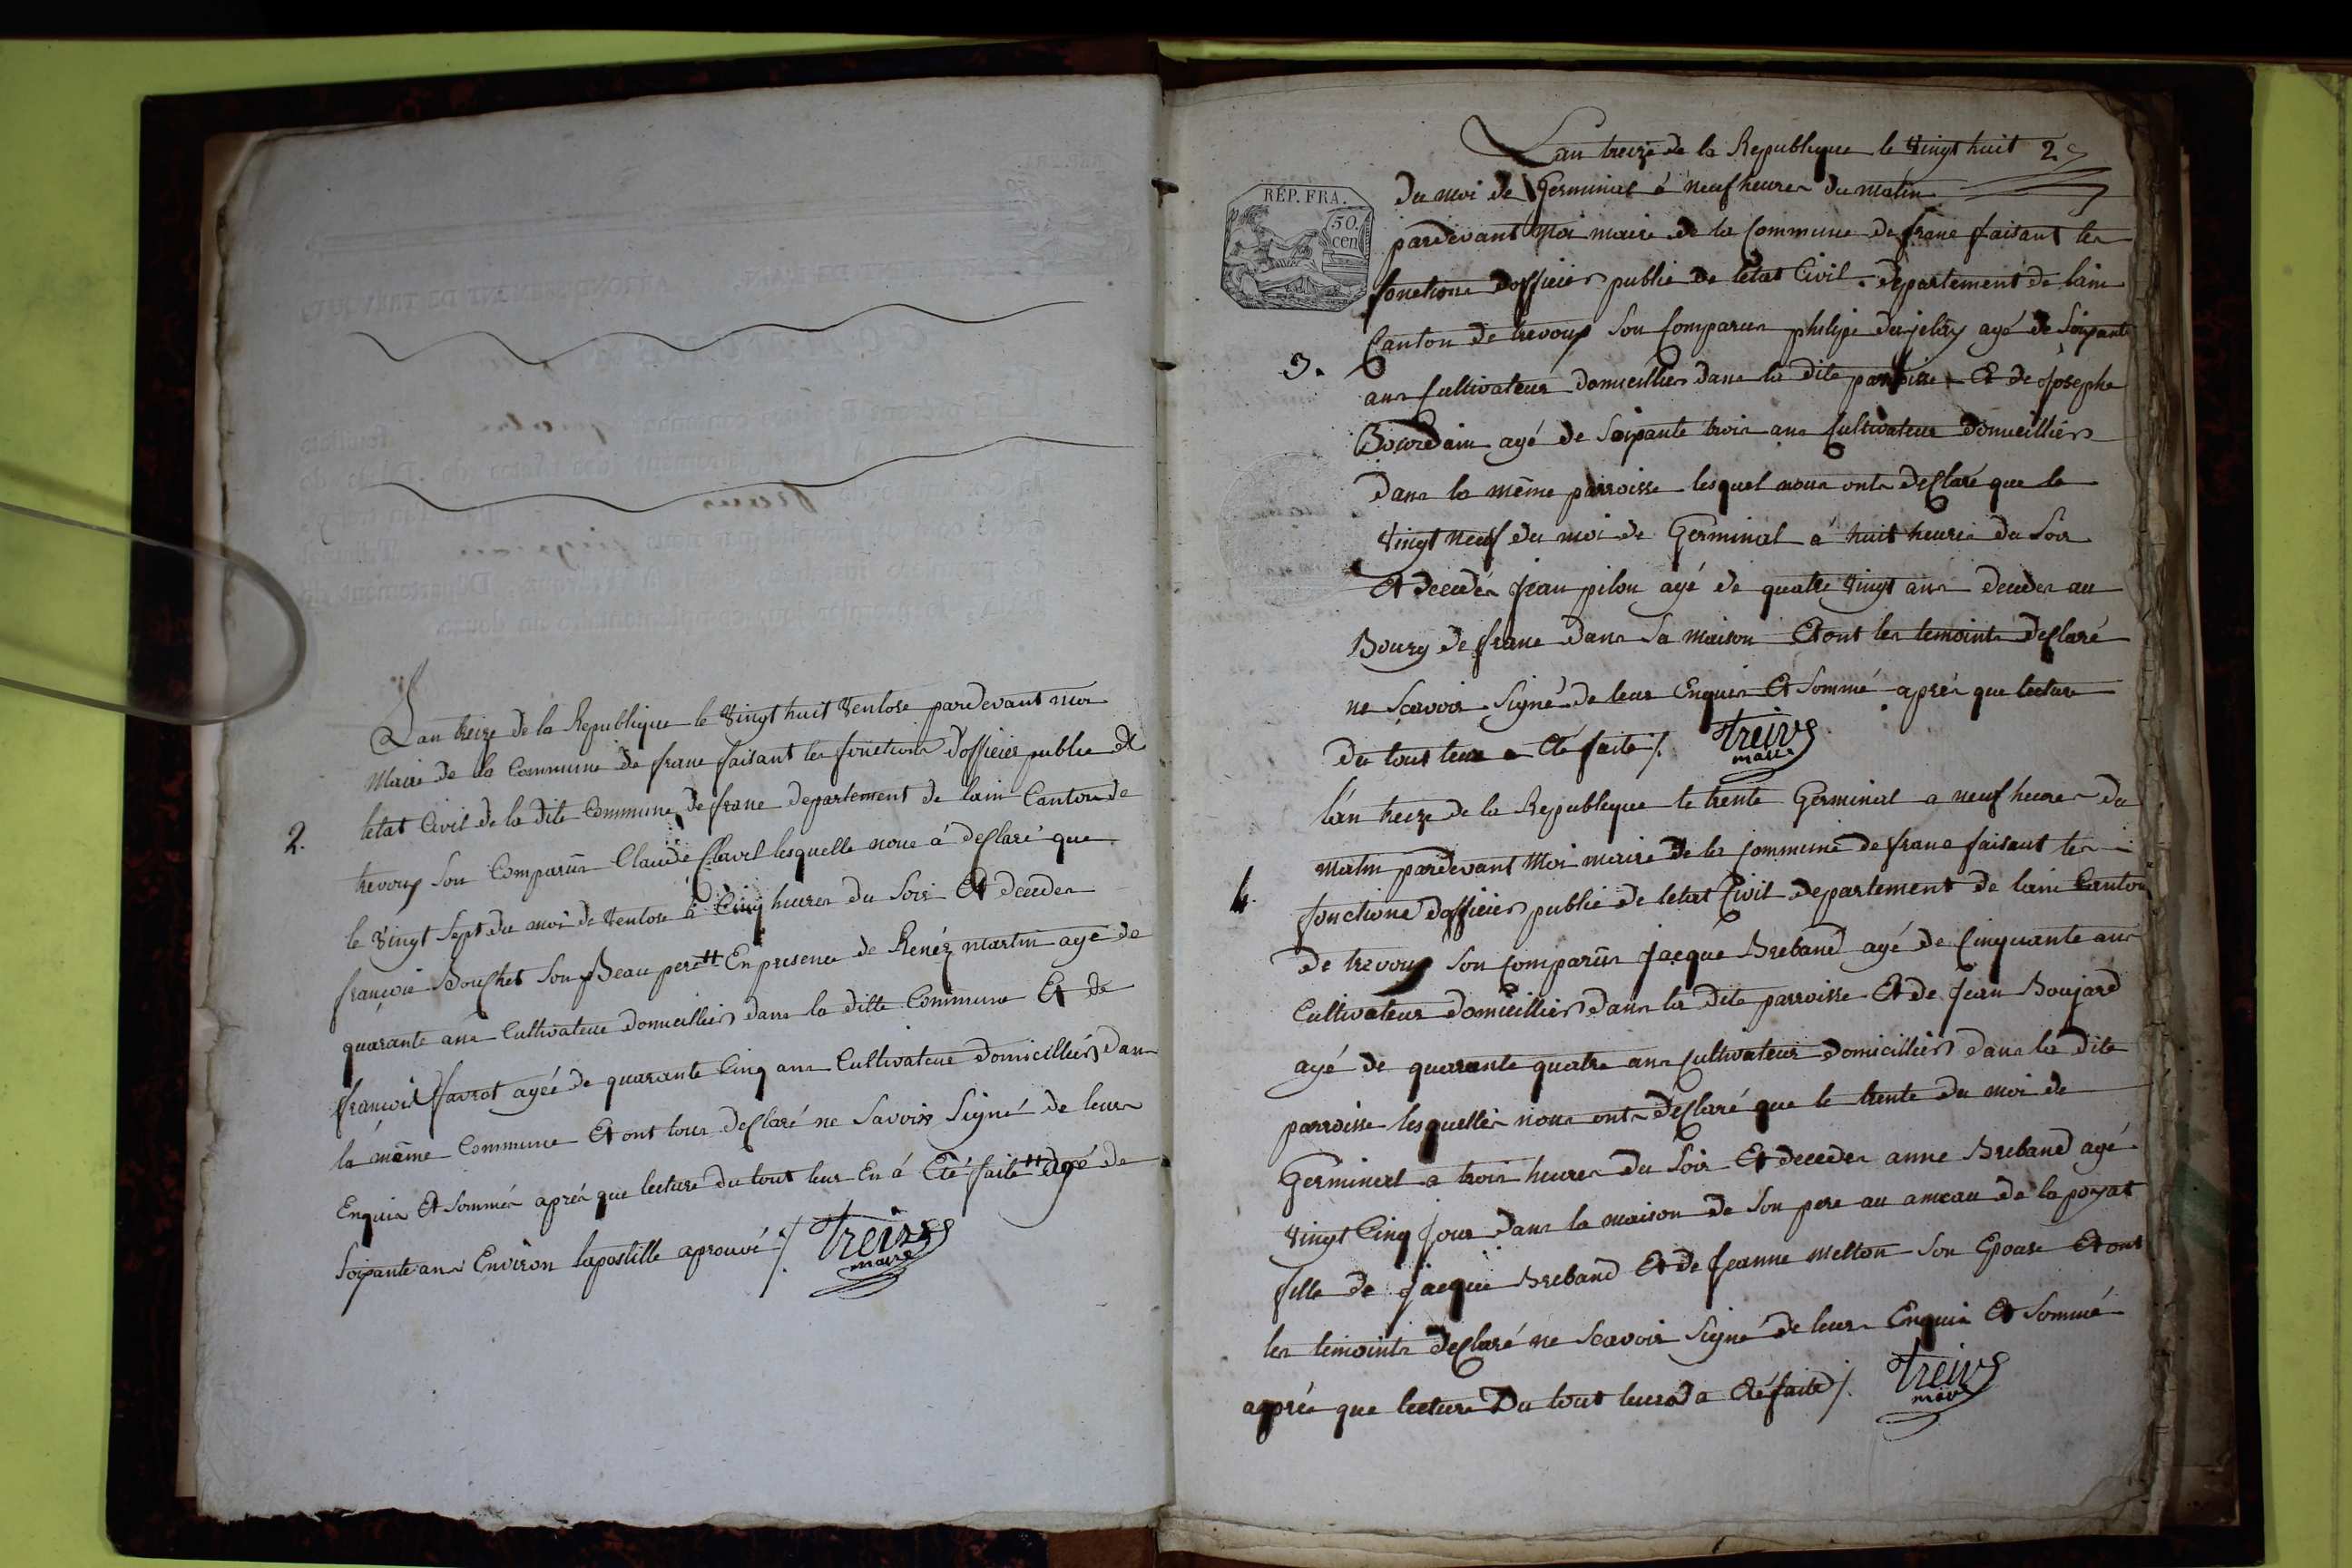 Lan treize de la Republique le vingt huit ventose pardevant moi
Maire de la Commune de franc faisant les fonctions dofficier public de
letat Civil de la dite Commune de franc departement de lain Canton de
2.
trevoux son Comparus Claude Clavel lesquelle nous á desclaré que
le vingt sept du moi de ventose à Cinq heures du Soir Et deceder
françois Bouchet Son Beau pere # En presence de Renéz martin agé de
quarante ans Cultivateur domicillier dans la ditte Commune Et de
françois favrot agée de quarante Cinq ans Cultivateur domicillier dans
la même Commune Et ont tous desclaré ne Savoir Signé de leurs
Enquis Et Sommés aprés que lecture du tout leur En á Eté faite # agé de
Soixante ans Environ lapostille aprouvé ./. Treive
maire
Lan treize de la Republique le vingt huit 2
du moi de Germinal á neuf heures du matin
REP. FRA.
50.
cen
pardevant Moi maire de la Commune de franc faisant les
fonctions dofficier public de letat Civil departement de lain
Canton de trevoux Son Comparus philipe agé de Soixante
3.
ans Cultivateur domicillier dans la dite parroisse Et de Josephe
Bourdain agé de Soixante trois ans Cultivateur domicillier
dans la même parroisse lesquel nous onts desclaré que le
vingt neuf du moi de Germinal á huit heures du Soir
Et decedés jean pilon agé de quatre vingt ans deceder au
Bourg de franc dans Sa maison Et ont les temoints desclaré
ne Scavoir Signé de leur Enquis Et Sommé aprés que lecture
du tout leur a Eté faite ./. Treive
maire
lán treize de la Republique le trente Germinal a neuf heures du
matin pardevant Moi maire de la Commune de franc faisant les
4.
fonctions dofficier public de letat Civil departement de lain Canton
de trevoux Son Comparus jacque Breband agé de Cinquante ans
Cultivateur domicillier dans la dite parroisse Et de Jean Boujard
agé de quarante quatre ans Cultivateur domicillier dans la dite
parroisse lesquelles nous onts desclaré que le trente du moi de
Germinal a trois heures du Soir Et deceder anne Breband agé
vingt Cinq jour dans la maison de Son pere au ameau de la poyat
fille de jacque Breband Et de jeanne melton Son Epouse Et ont
les temoints desclaré ne Scavoir Signé de leurs Enquis Et Sommé
aprés que lecture Du tout leurs a Eté faite ./. Treive
maire